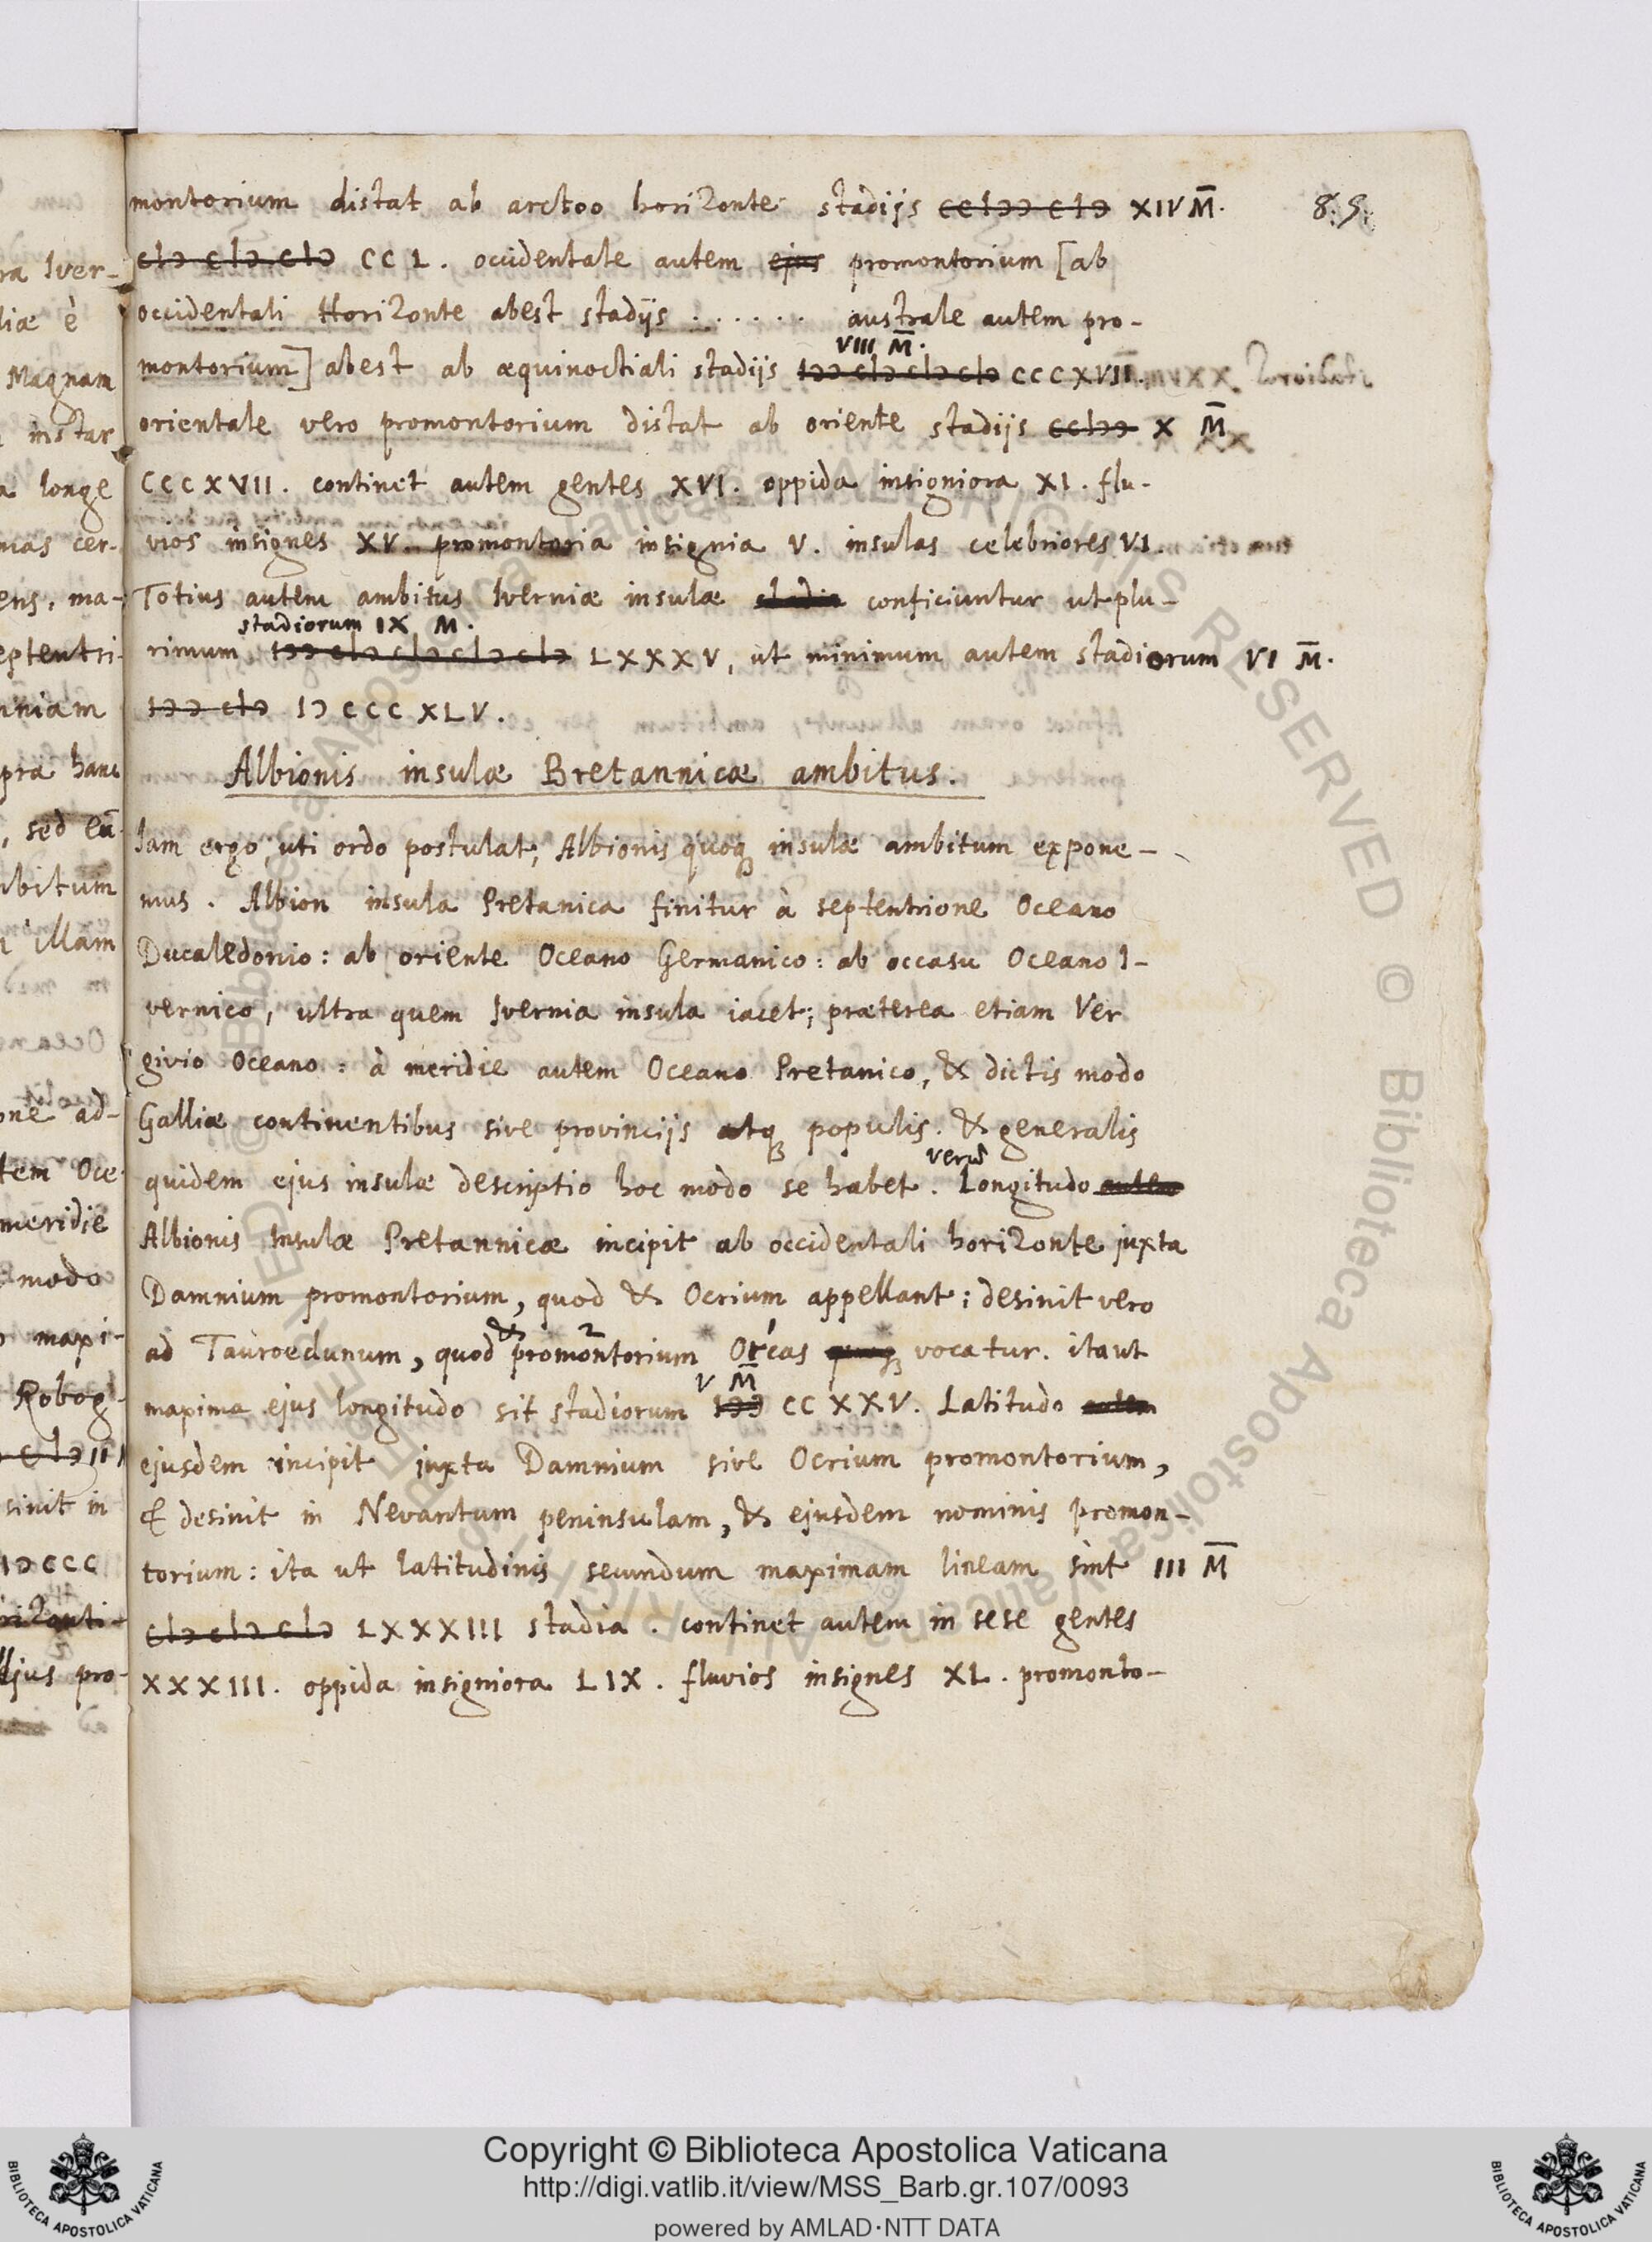 montorium distat ab arctoo horizonte stadijs ccIↃↃ cIↃ XIV M̄. 85.
cIↃ cIↃ cIↃ CCL. occidentale autem ejus promontorium [ab
occidentali Horizonte abest stadijs . . . . . . australe autem pro-
VIII M̄.
montorium] abest ab æquinoctiali stadijs IↃↃ cIↃ cIↃ cIↃ CCCXVII.
orientale vero promontorium distat ab oriente stadijs ccIↃↃ X M̄
CCCXVII. continet autem gentes XVI. oppida insigniora XI. flu-
vios insignes XV. promontoria insignia V. insulas celebriores VI.
Totius autem ambitus Iverniæ insulæ stadia conficiuntur ut plu-
stadiorum IX M.
rimum IↃↃ cIↃ cIↃ cIↃ cIↃ LXXXV, ut minimum autem stadiorum VI M̄.
IↃↃ cIↃ IↃ CCC XLV.
Albionis insulæ Bretannicæ ambitus.
Iam ergo uti ordo postulat, Albionis quoqꝫ insulæ ambitum expone-
mus. Albion insula Pretanica finitur à septentrione Oceano
Ducaledonio: ab oriente Oceano Germanico: ab occasu Oceano I-
vernico, ultra quem Ivernia insula iacet; præterea etiam Ver
givio Oceano: à meridie autem Oceano Pretanico, & dictis modo
Galliæ continentibus sive provincijs atqꝫ populis. & generalis
vero
quidem ejus insulæ descriptio hoc modo se habet. Longitudo autem
Albionis Insulæ Pretannicæ incipit ab occidentali horizonte juxta
Damnium promontorium, quod & Ocrium appellant; desinit vero
& 2 * 1 *
ad Tauroedunum, quod promontorium Orcas quoqꝫ vocatur. ita ut
V M̄
maxima ejus longitudo sit stadiorum IↃↃ CC XXV. Latitudo autem
ejusdem incipit juxta Damnium sive Ocrium promontorium,
& desinit in Nevantum peninsulam, & ejusdem nominis promon-
torium: ita ut latitudinis secundum maximam lineam sint III M̄
cIↃ cIↃ cIↃ LXXXIII stadia. continet autem in sese gentes
XXXIII. oppida insigniora LIX. fluvios insignes XL. promonto-
Copyright © Biblioteca Apostolica Vaticana
http://digi.vatlib.it/view/MSS_Barb.gr.107/0093
powered by AMLAD·NTT DATA